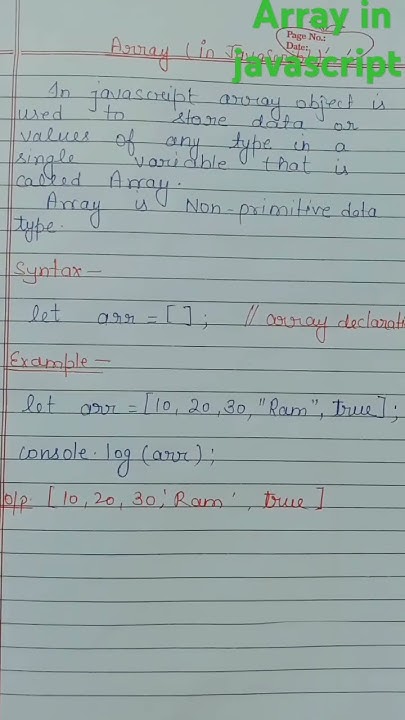 Array in
javascript
Page No.:
Date:
Array (in Javascript)
In javascript array object is
used to store data or
values of any type in a
single variable that is
called Array.
Array is Non-primitive data
type.
Syntax -
let arr = [ ]; // array declarati
Example -
let arr = [10, 20, 30, "Ram", true];
console.log (arr);
O/p. [10, 20, 30, 'Ram', true]